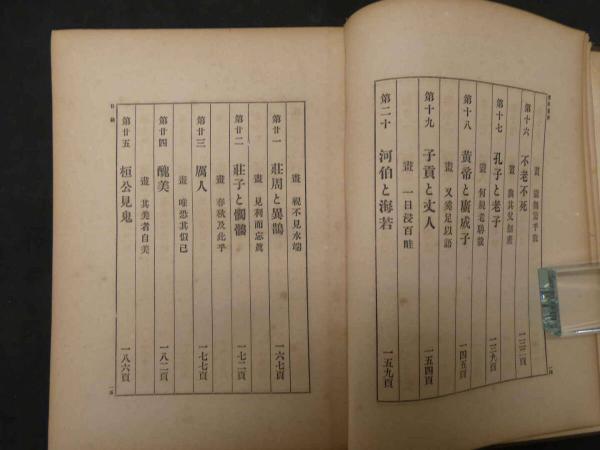 第十六 不老不死 一三二頁
第十七 孔子と老子 一三九頁
畫 何規老聃哉
第十八 黃帝と廣成子 一四五頁
畫 又奚足以語
第十九 子貢と丈人 一五四頁
畫 一日浸百畦
第二十 河伯と海若 一五九頁
畫 視不見水端
第廿一 莊周と異鵲 一六七頁
畫 見利而忘眞
第廿二 莊子と髑髏 一七二頁
畫 春秋及此乎
第廿三 厲人 一七七頁
畫 唯恐其似己
第廿四 醜美 一八二頁
畫 其美者自美
第廿五 桓公見鬼 一八六頁
目錄